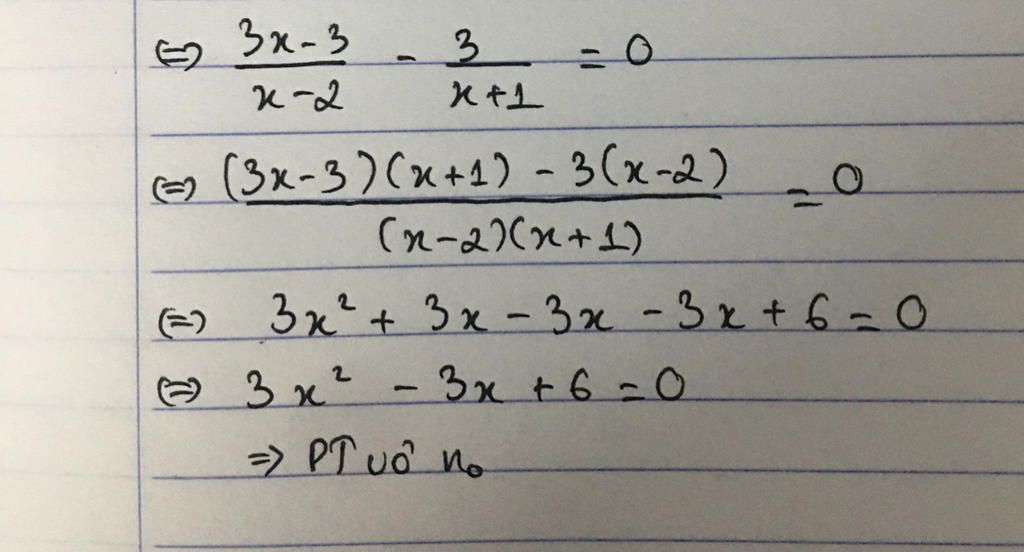 ⇔ (3x-3)/(x-2) - 3/(x+1) = 0
⇔ ((3x-3)(x+1) - 3(x-2))/((x-2)(x+1)) = 0
⇔ 3x² + 3x - 3x - 3x + 6 = 0
⇔ 3x² - 3x + 6 = 0
⇒ PT vô n₀